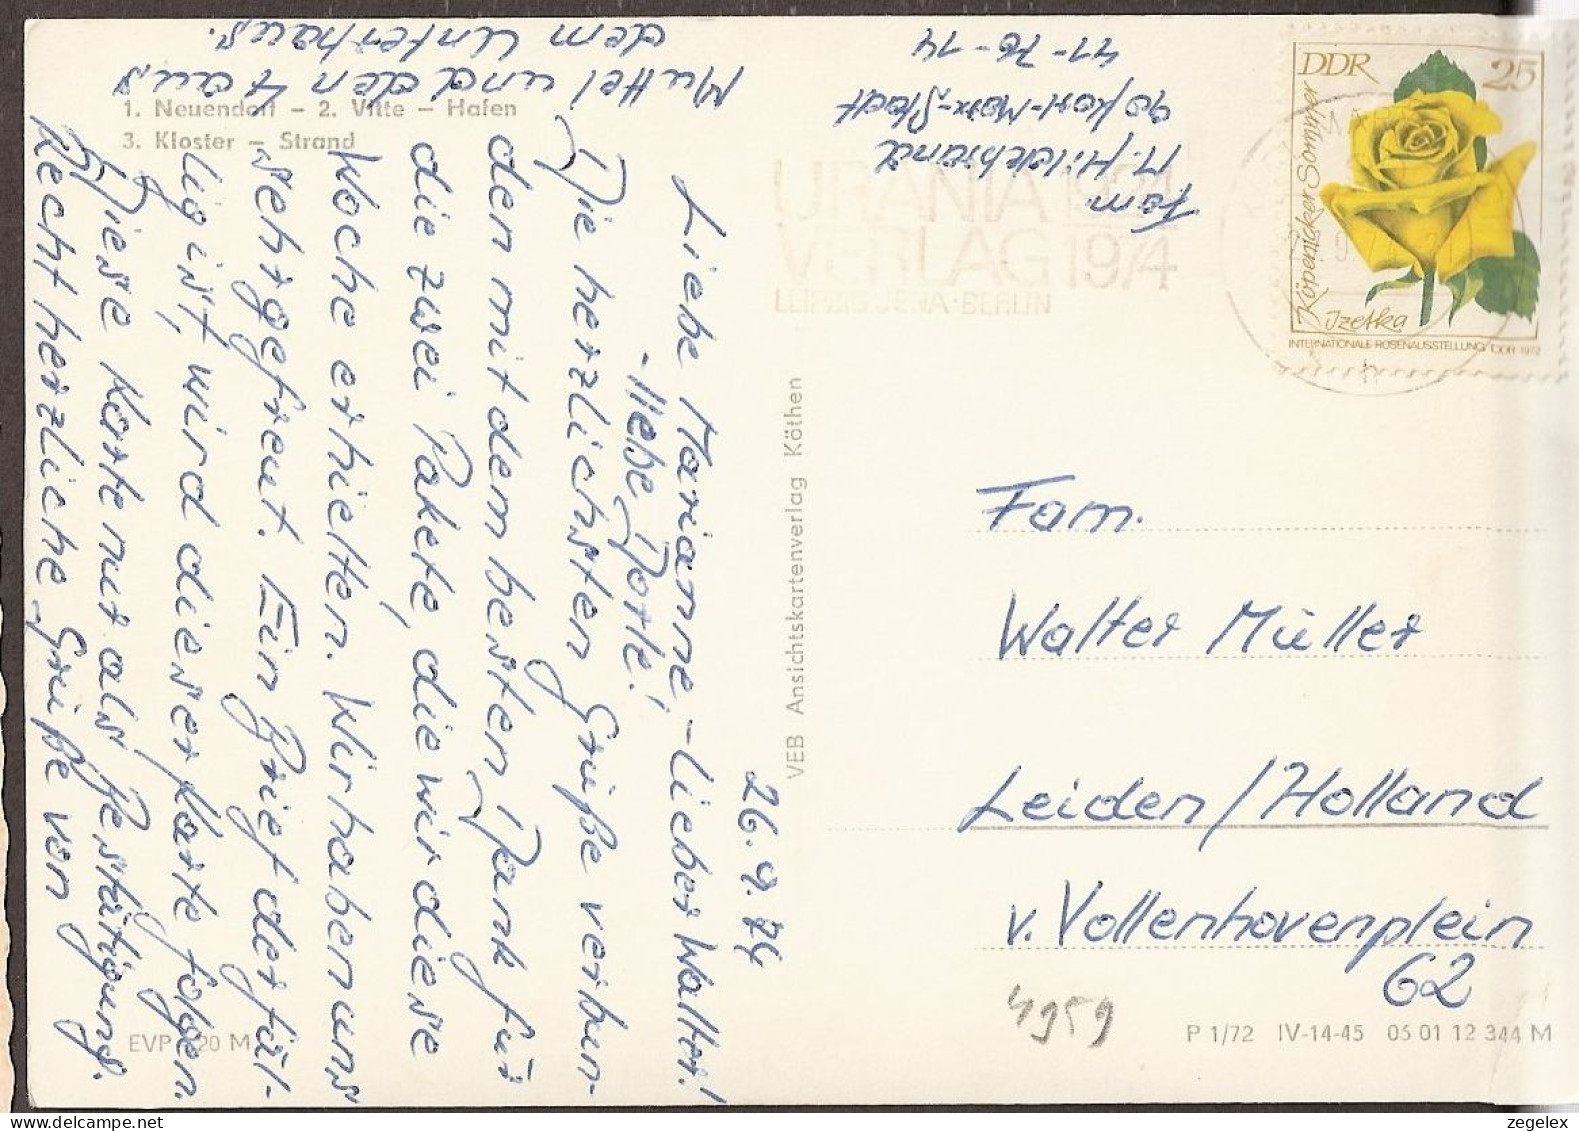 1. Neuendorf – 2. Vitte – Hafen
3. Kloster – Strand
26.9.74
Liebe Marianne, - lieber Walter!
- liebe Dorle!
Die herzlichsten Grüße verbun-
den mit dem besten Dank für
die zwei Pakete, die wir diese
Woche erhielten. Wir haben uns
sehr gefreut. Ein Brief der fäl-
lig ist, wird dieser Karte folgen.
Diese Karte nur als Bestätigung.
Recht herzliche Grüße von
Muttel und den 4 aus
dem Unterhaus.
Fam.
M. Hildebrand
90 Karl-Marx-Stadt
41-76-14
URANIA 1924
VERLAG 1974
LEIPZIG·JENA·BERLIN
DDR 25
Köpenicker Sommer
Izetka
INTERNATIONALE ROSENAUSSTELLUNG DDR 1972
VEB Ansichtskartenverlag Köthen
Fam.
Walter Müller
Leiden/Holland
v. Vollenhovenplein
62
4959
EVP 20 M
P 1/72 IV-14-45 05 01 12 344 M
zegelex